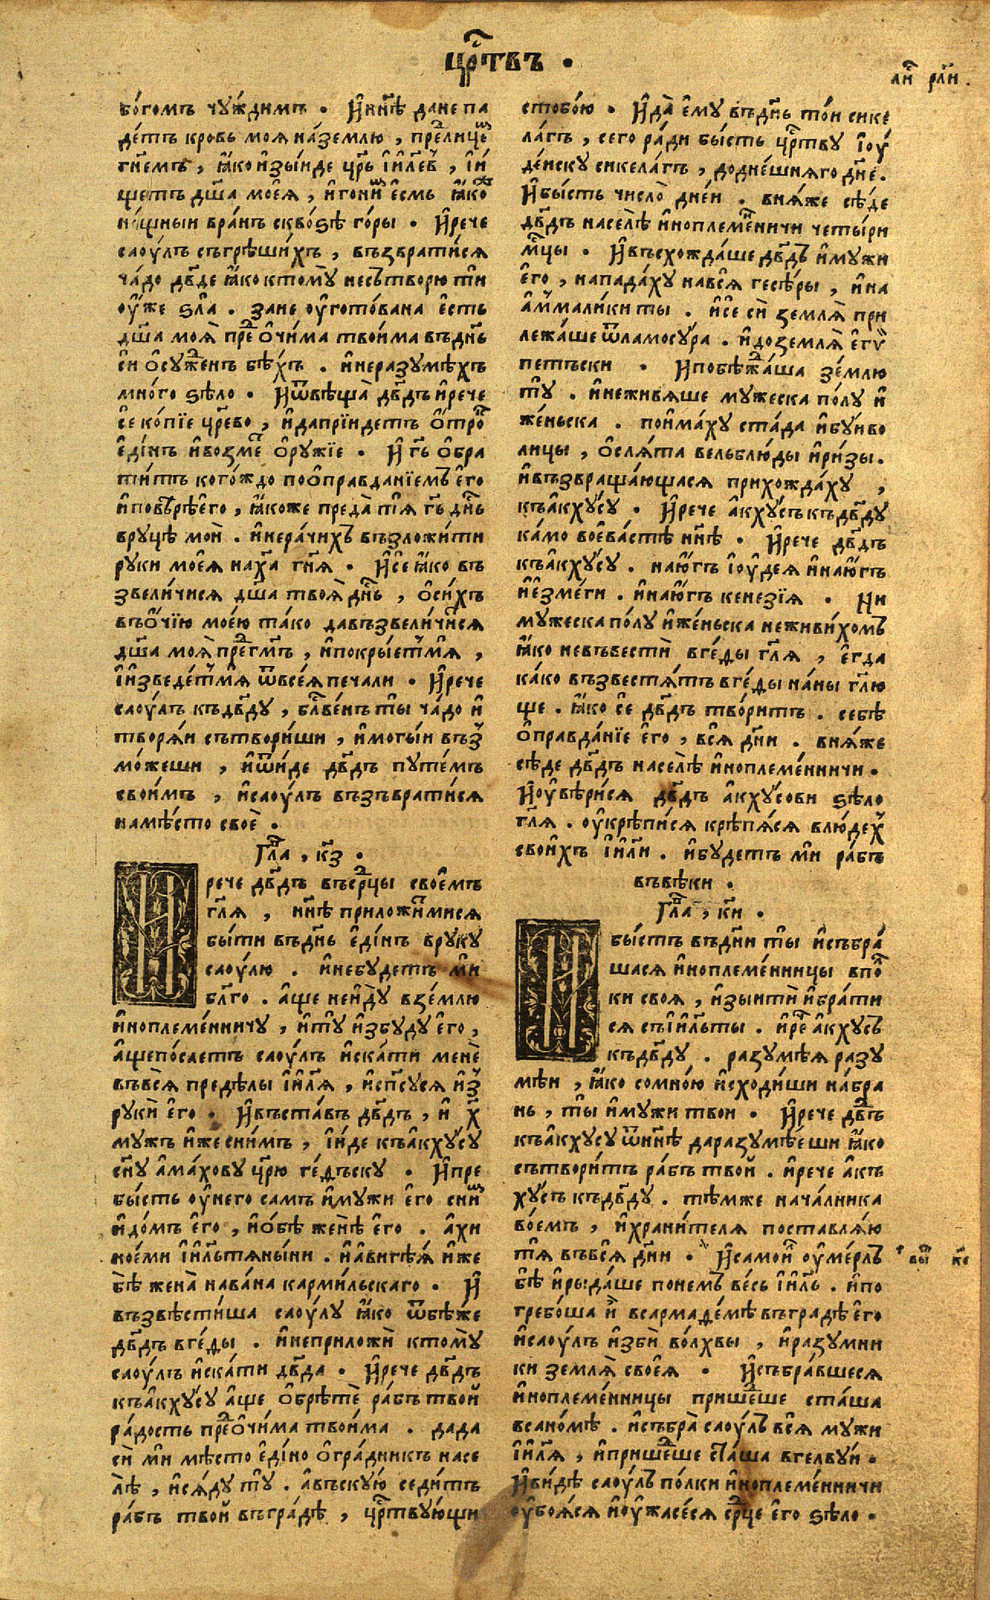 црⷭ҇твъ .
лиⷭ҇ рл҃и .
бо́гомъ чу́ждимъ . И҆ нн҃ѣ да не па
де́тъ кровь моя на́землю , преⷣ лицеⷨ
гн҃емъ , ꙗ҆́ко и҆зы́иде цр҃ь і҆и҃лев , і҆и
щетъ дш҃а мое́я , и҆ гони҆ⷨ є҆смь ꙗ҆́коⷤ
но́щныи вра́нъ сквоѕѣ го́ры . И҆ рече
саоу́лъ съгрѣши́хъ , възврати́ся
ча́до дв҃де ꙗ҆ко ктомꙋ̀ несътворю ти
оу҆́же ѕла̀ . зане оу҆гото́вана є҆сть
дш҃а моя̀ преⷣ о҆чима твои́ма въ дн҃ь
си о҆сꙋжⷣенъ бѣ́хъ . и҆ неразꙋмѣхъ
мно́го ѕѣло . И҆ ѿвѣща̀ дв҃дъ и҆ рече
се ко́пїе цр҃ево , и҆ да прїидетъ о҆троⷦ҇
є҆ди́нъ и҆ во́змеⷮ о҆рꙋжїе . И҆ гь҃ о҆бра
ти́тъ кого́ждо по о҆правда́нїемъ є҆го
и҆ повѣ́рѣ є҆го , ꙗ҆́коже преда̀ тѧ гь҃ дн҃ь
врꙋцѣ мои̇̀ . и҆ нера́чихъ възложи́ти
рꙋки моея̀ на хⷭ҇а гн҃я . И҆ се ꙗ҆́ко въ
звели́чися дш҃а твоя̀ дн҃ь , о҆си́хъ
въ о҆́чїю мое́ю та́ко да възвели́чи́ся
дш҃а моя̀ преⷣ гм҃ъ , и҆ покры́етъ мѧ̀ ,
і҆ и҆зведе́тъ мѧ ѿ всея печали . И҆ рече
саоу́лъ къ дв҃дꙋ , блⷭ҇ве́нъ ты ча́до и҆
творя́и сътвори́ши , и҆ мого́и въз
мо́жеши , и҆ ѿи́де дв҃дъ пꙋте́мъ
свои́мъ , и҆ саоу́лъ възъврати́ся
на мѣ́сто своѐ .
Глⷡ҇а , кз҃ .
рече дв҃дъ въ срⷣцы свое́мъ
гл҃я , нн҃ѣ приложи́мися
бы́ти въ дн҃ь є҆ди́нъ врꙋкꙋ
саоу́лю . и҆ небꙋдетъ ми
бл҃го . а҆ще неи҆дꙋ в зе́млю
и҆ноплеме́нничꙋ , и҆ тꙋ̀ и҆збꙋдꙋ є҆го ,
а҆ще по́слетъ саоу́лъ и҆ска́ти менѐ
въ вся̀ преде́лы і҆и҃ля , и҆ сп҃сꙋся и҆з
рꙋкѝ є҆го . И҆ въста́въ дв҃дъ , и҆ х҃
мꙋжъ и҆же сни́мъ , і҆и́де къ а҆кхꙋ́сꙋ
сн҃ꙋ а҆ма́ховꙋ цр҃ю ге́дъскꙋ . И҆ пре
бысть оу҆ него самъ и҆ мꙋжи є҆го сниⷨ
и҆ до́мъ є҆го , и҆ о҆бѣ женѣ̀ є҆го . ахи
ное́ми і҆и҃льтяны́ни . и҆ а҆виге́я и҆же
бѣ жена̀ нава́на карми́льскаго . И҆
възвѣсти́ша саоу́лꙋ ꙗ҆ко ѿбѣ́же
дв҃дъ в ге́ды . и҆ неприложѝ ктомꙋ̀
саоу́лъ и҆ска́ти дв҃да . И҆ рече дв҃дъ
къ а҆кхꙋ́сꙋ а҆ще о҆брѣ́тѐ ра́бъ твой
ра́дость преⷣ о҆чима твои́ма . да да
си ми мѣ́сто є҆ди́но о҆гра́дникъ на се
лѣ̀ , и҆ ся́дꙋ тꙋ̀ . а въскꙋю седи́тъ
ра́бъ твой въ гра́дѣ , црⷭ҇твꙋ́ющи
с тобо́ю . И҆ да̀ є҆мꙋ въ дн҃ь то́и сике
ла́гъ , сего ра́ди бы́сть црⷭ҇твꙋ і҆оу
де́искꙋ сикела́гъ , до дне́шняго дн҃е .
И҆ бы́сть число̀ дне́й . вня́же сѣ́де
дв҃дъ на се́лѣ и҆ноплеме́нничи четы́ри
мⷭ҇цы . И҆ въсхожда́ше дв҃дъ и҆ мꙋжи
є҆го , нападахꙋ на вся гесѣ́ры , и҆ на
а҆мⷨали́киты . и҆ се сѝ земля̀ при
лежа́ше ѿ ламосꙋ́ра . и҆ до земля̀ є҆гѵ
петъски . И҆ побѣжⷣа́ша зе́млю
тꙋ̀ . и҆ неживя́ше мꙋжеска по́лꙋ и҆
же́ньска . пои́махꙋ ста́да и҆ бꙋ́иво
лицы , о҆сля́та вельблю́ды и҆ ри́зы .
и҆ възвраща́ющася прихожда́хꙋ ,
къ а҆кхꙋ́сꙋ . И҆ рече а҆кхꙋ́съ къ дв҃дꙋ
ка́мо воева́стѣ нн҃ѣ . И҆ рече дв҃дъ
къ а҆кхꙋ́сꙋ . на ю҆́гъ і҆оу́дея и҆ на ю҆́гъ
и҆е҆зме́ги . и҆ на ю҆́гъ кенезі́я . Ни
мꙋжеска по́лꙋ и҆ же́ньска неживи́хомъ
ꙗ҆́ко невъвестѝ в ге́ды гл҃я , є҆гда
ка́ко възвестя́тъ в ге́ды на́ ны гл҃ю
ще . ꙗ҆́ко се дв҃дъ тво́ритъ . себѣ
о҆правда́нїе є҆го , вся дн҃и . вня́же
сѣ́де дв҃дъ на се́лѣ̀ и҆ноплеме́нничи .
И҆ оу҆вѣ́рися дв҃дъ а҆кхꙋ́сови ѕѣло
гл҃я . оу҆крѣпи́ся крѣпя́ся в лю́дех
свои́хъ і҆и҃ли . и҆ бꙋ́детъ ми ра́бъ
въ вѣ́ки .
Глⷡ҇а , ки҃ .
бы́сть въ дн҃и ты и҆ събра́
шася и҆ноплеме́нницы в поⷧ҇
ки своя , и҆зы́ити и҆ бра́ти
ся съ і҆и҃льты . и҆ реⷱ҇ а҆кхꙋсъ
къ дв҃дꙋ . разꙋмѣ́я разꙋ
мѣ́и , ꙗ҆́ко сомно́ю и҆схо́диши на́ бра
нь , ты и҆ мꙋжи твои . И҆ рече дв҃дъ
къ а҆кхꙋсꙋ ѿ нн҃ѣ да разꙋмѣ́еши ꙗ҆ко
сътвори́тъ ра́бъ твой . и҆ рече а҆къ
хꙋсъ къ дв҃дꙋ . тѣ́мже нача́лника
во́емъ , и҆ храни́теля поставля́ю
тѧ̀ въ вся дн҃и . И҆ самои҆ⷧ оу҆ме́рлъ
бѣ̀ и҆ рыда́ше по немъ ве́сь і҆и҃ль . и҆ по
гребо́ша и҆̀ в сармаде́мѣ въ градѣ̀ є҆го
и҆ саоу́лъ и҆збѝ во́лхвы , и҆ разꙋмни
ки земля̀ своея̀ . И҆ събра́вшеся
и҆ноплеме́нницы прише́дше ста́ша
в сано́мѣ . и҆ събра̀ саоу́лъ вся мꙋжи
і҆и҃ля , и҆ прише́дше ста́ша в гелвꙋ́и .
И҆ ви́дѣ саоу́лъ по́лки и҆ноплеме́нничи
оу҆боя́ся и҆ оу҆жасе́ся срⷣце є҆го ѕѣло .